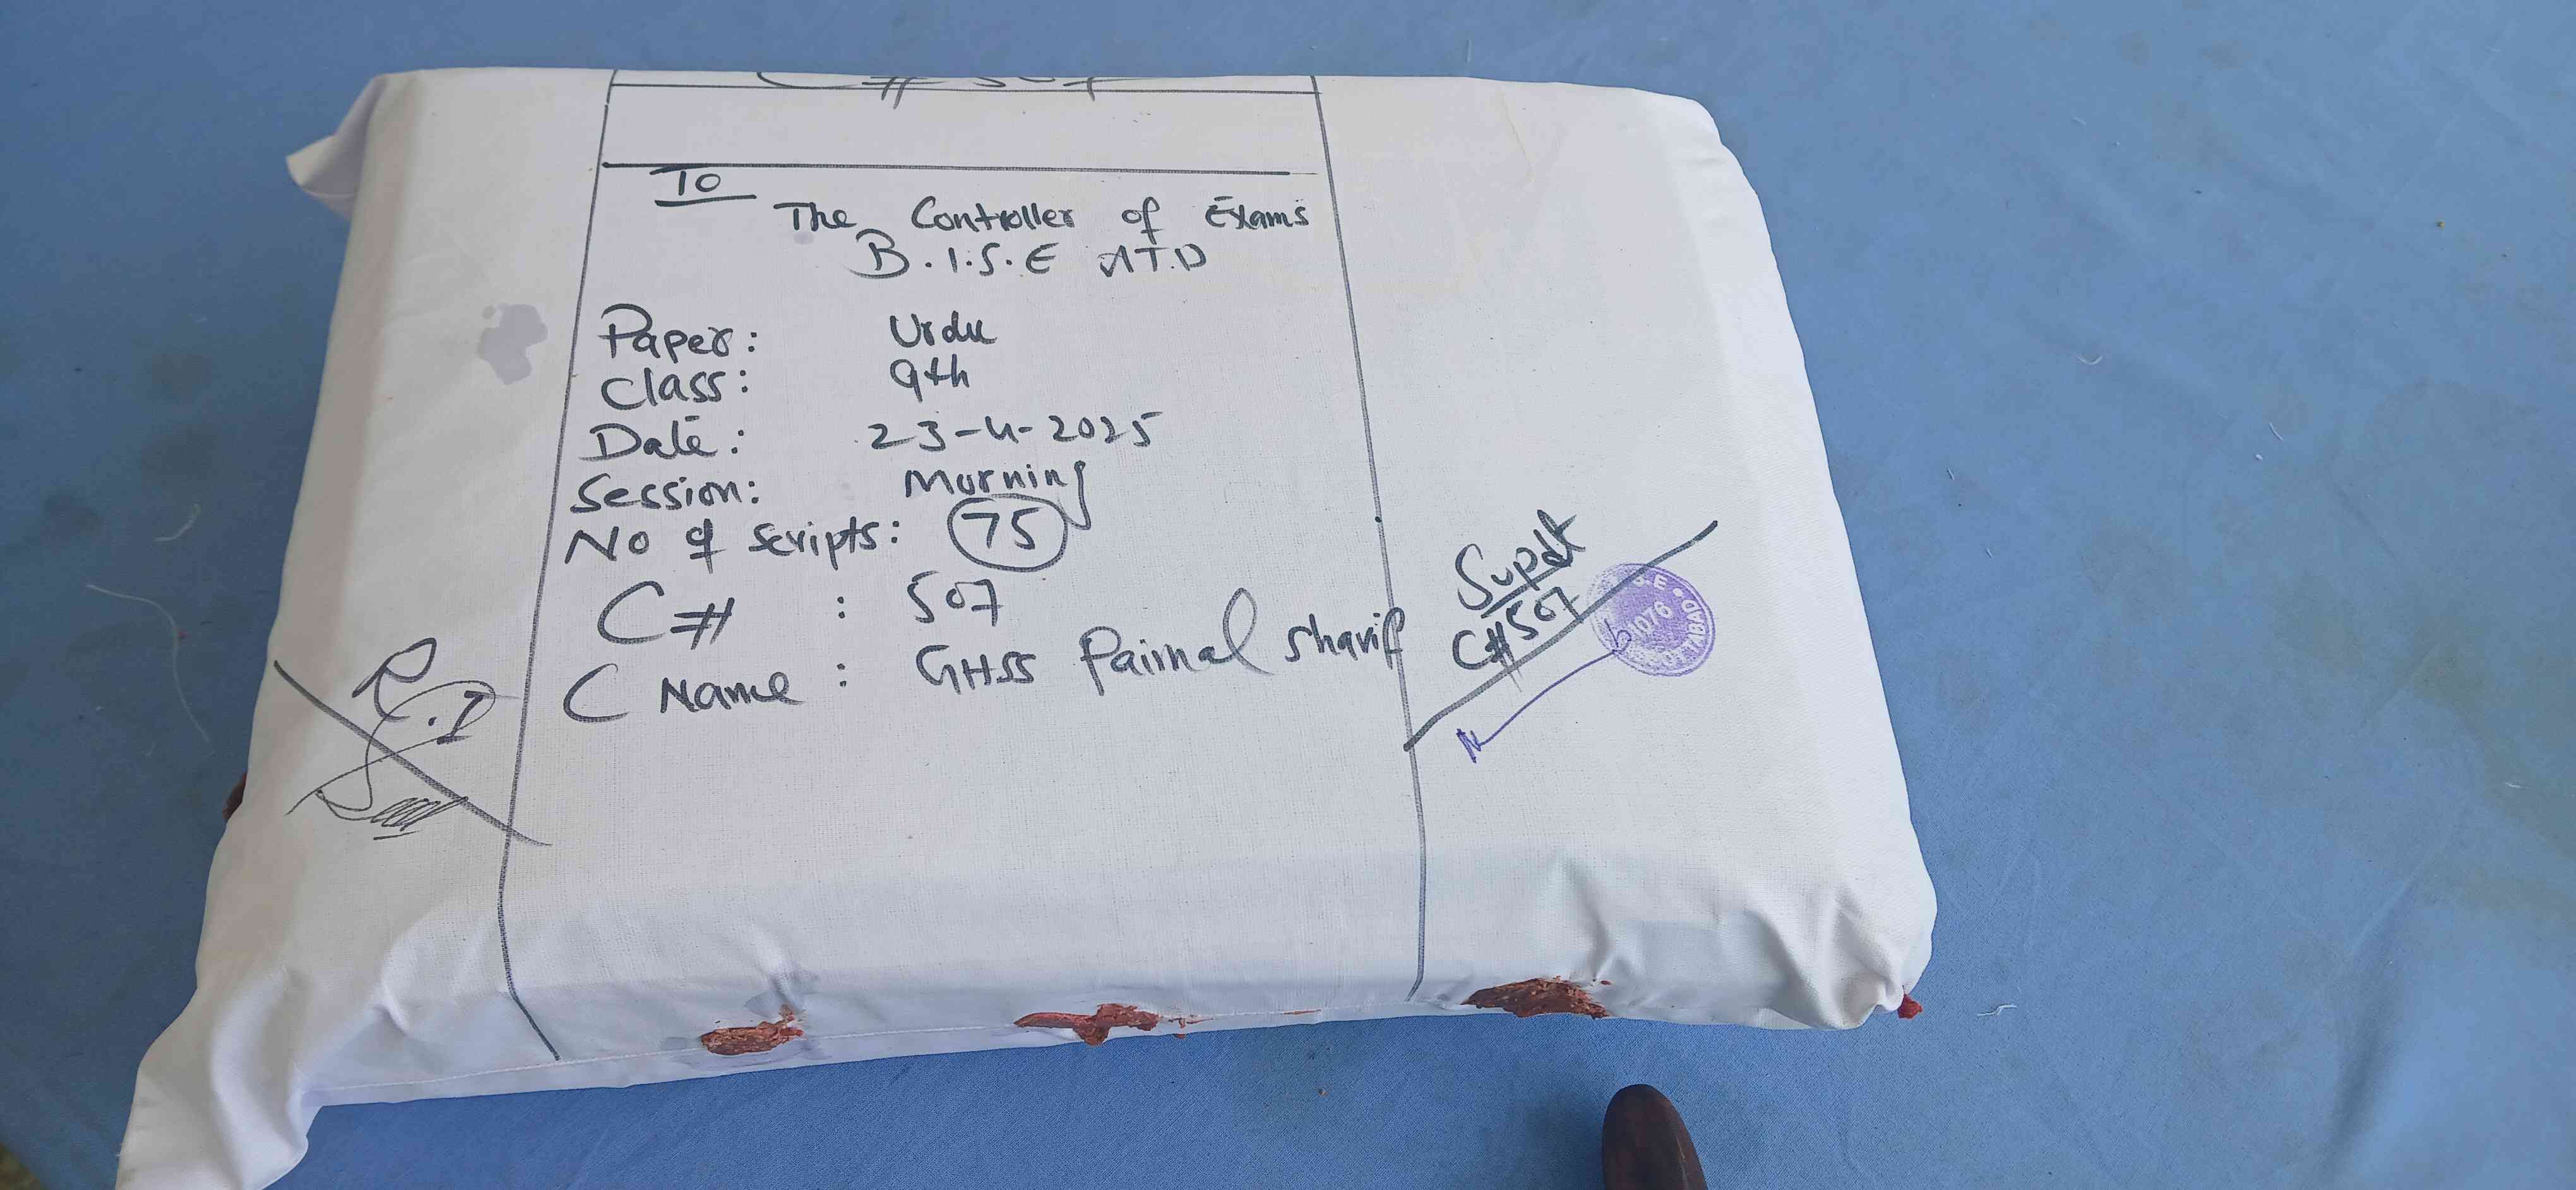 C# 507
To
The Controller of Exams
B.I.S.E ATD
Paper: Urdu
Class: 9th
Date: 23-4-2025
Session: Morning
No of scripts: 75
C# : 507
C Name : GHSS Paimal Sharif
Supdt
C# 507
1076
R.I